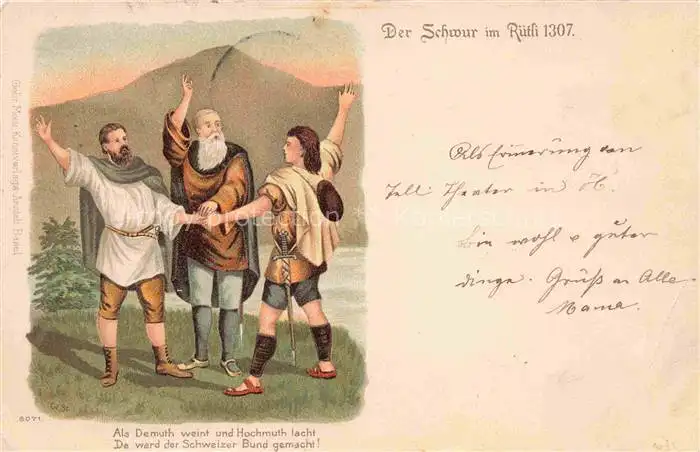 Der Schwur im Rütli 1307.
Als Erinnerung von
Tell Theater in
bin wohl & guter
dinge. Gruß an Alle.
Mama.
Gebr. Metz Kunstverlags-Anstalt Basel
6071
Als Demuth weint und Hochmuth lacht
Da ward der Schweizer Bund gemacht!